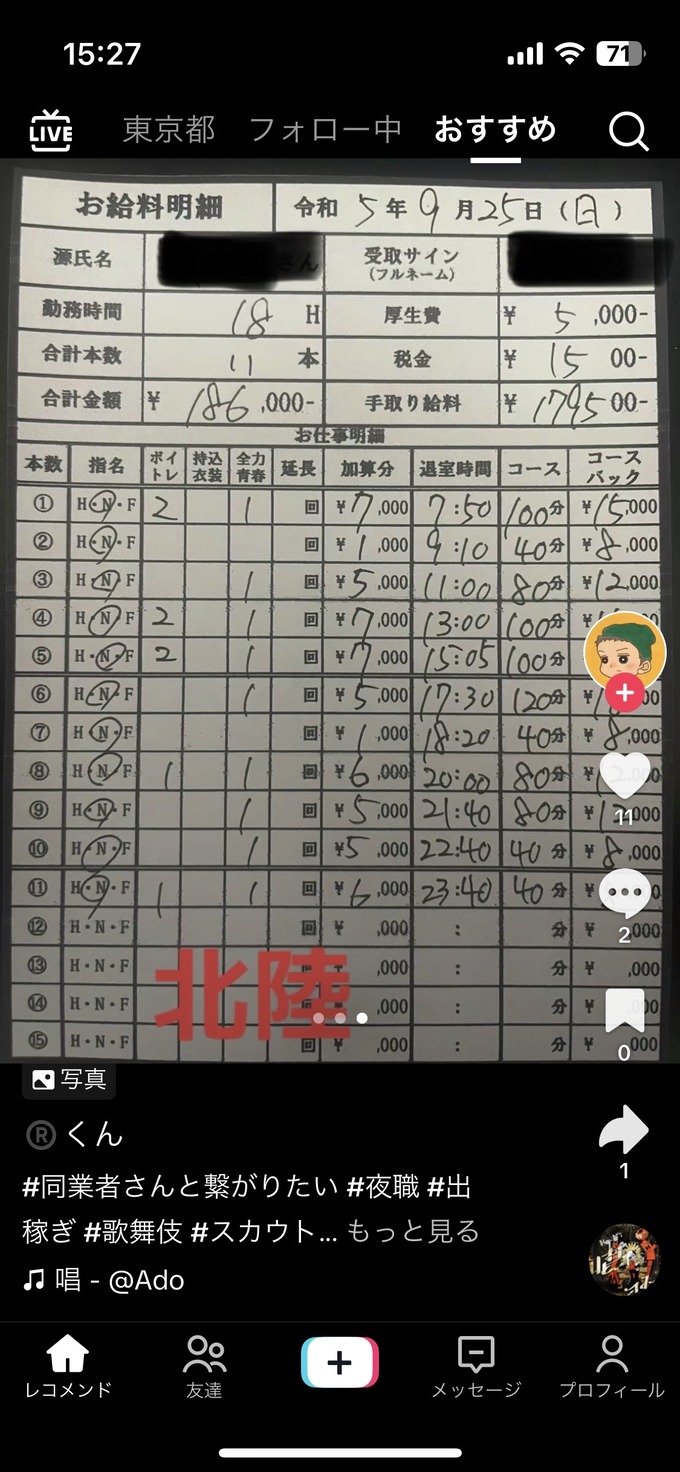 15:27
71
LIVE
東京都 フォロー中 おすすめ
お給料明細 令和 5年 9月25日(日)
源氏名 さん 受取サイン
(フルネーム)
勤務時間 18 H 厚生費 ¥ 5,000-
合計本数 11 本 税金 ¥ 1500-
合計金額 ¥ 186,000- 手取り給料 ¥ 179500-
お仕事明細
本数 指名 ボイトレ 持込衣装 全力青春 延長 加算分 退室時間 コース コースバック
① H・N・F 2 1 回 ¥7,000 7:50 100分 ¥15,000
② H・N・F 回 ¥1,000 9:10 40分 ¥8,000
③ H・N・F 1 回 ¥5,000 11:00 80分 ¥12,000
④ H・N・F 2 1 回 ¥7,000 13:00 100分 ¥
⑤ H・N・F 2 1 回 ¥7,000 15:05 100分
⑥ H・N・F 1 回 ¥5,000 17:30 120分 ¥
⑦ H・N・F 回 ¥1,000 18:20 40分 ¥8,000
⑧ H・N・F 1 1 回 ¥6,000 20:00 80分 ¥12,000
⑨ H・N・F 1 回 ¥5,000 21:40 80分 ¥12,000
⑩ H・N・F 1 回 ¥5,000 22:40 40分 ¥8,000
⑪ H・N・F 1 1 回 ¥6,000 23:40 40分 ¥
⑫ H・N・F 回 ¥ ,000 : 分 ¥ ,000
⑬ H・N・F 回 ¥ ,000 : 分 ¥ ,000
⑭ H・N・F ¥ ,000 : 分 ¥ ,000
⑮ H・N・F 回 ¥ ,000 : 分 ¥ ,000
北陸
11
2
0
写真
®くん
1
#同業者さんと繋がりたい #夜職 #出
稼ぎ #歌舞伎 #スカウト... もっと見る
唱 - @Ado
レコメンド 友達 メッセージ プロフィール